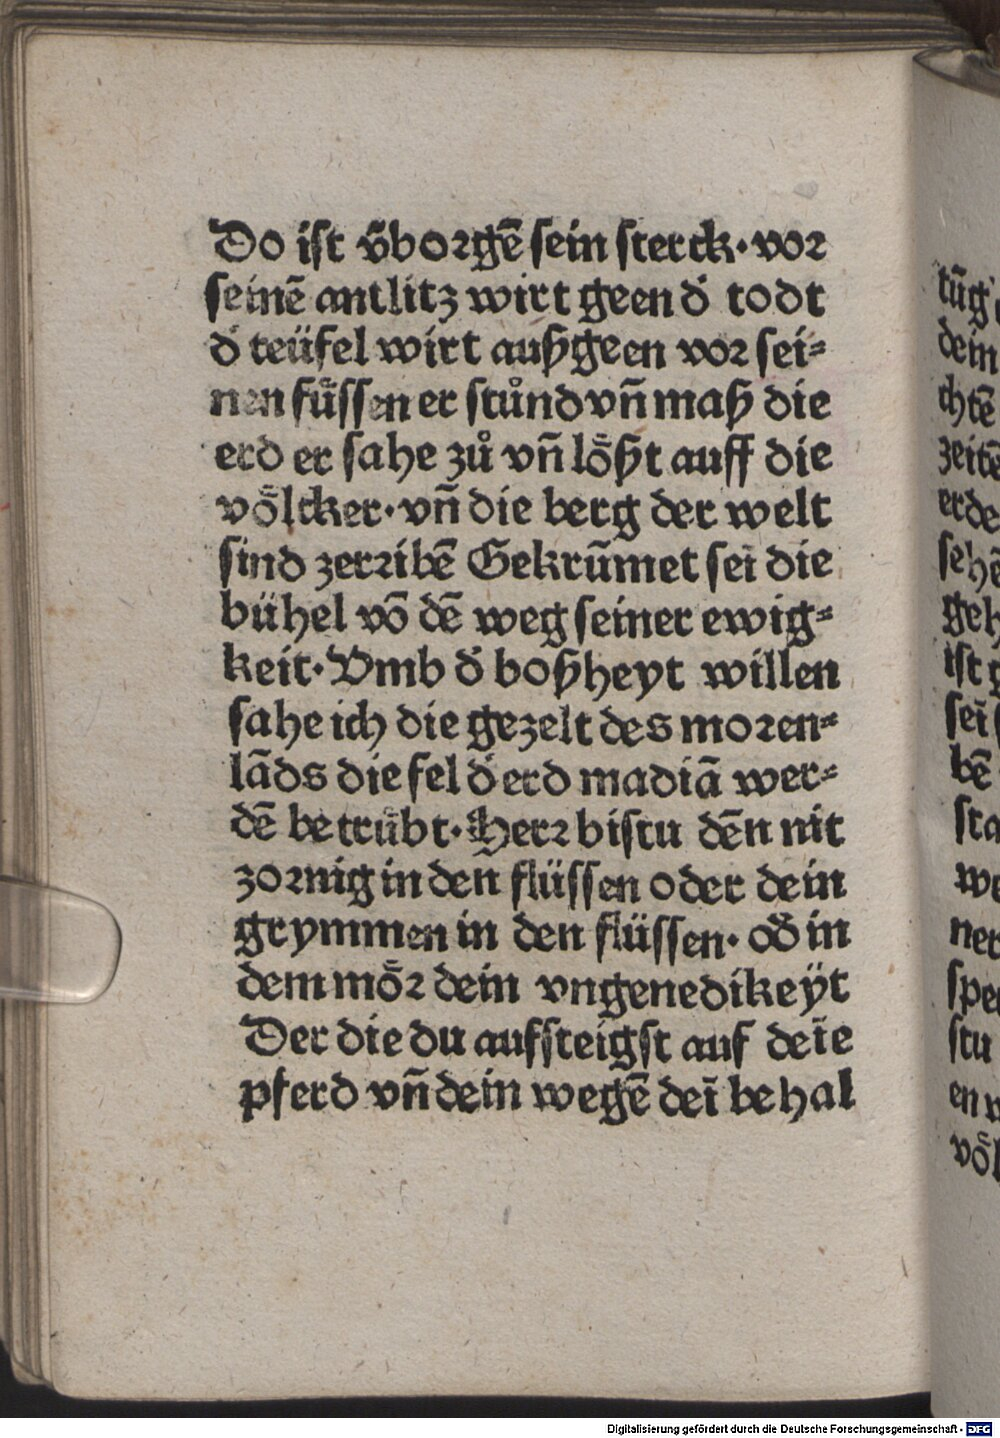 Do ist v̄borgē sein sterck· vor
seinē antlitz wirt geen d̓ todt
d̓ teüfel wirt außgeen vor sei⸗
nen fuͤssen er stuͦnd vn̄ maß die
erd er sahe zuͦ vn̄ loͤßt auff die
voͤlcker· vn̄ die berg der welt
sind zerribē Gekrūmet sei die
bühel vō dē weg seiner ewig⸗
keit· Vmb d̓ boßheyt willen
sahe ich die gezelt des moren⸗
lāds die fel d̓ erd madiā wer⸗
dē betruͤbt· Herr bistu dēn nit
zornig in den flüssen oder dein
grymmen in den flüssen· od̓ in
dem moͤr dein vngenedikeÿt
Der die du aufsteigst auf deīe
pferd vn̄ dein wegē deī behal
tūg
dein
chtē
zeitē
erde
sehē
geh
ist g
sei
bē
sta
we
ner
spe
stu
en w
voͤl
Digitalisierung gefördert durch die Deutsche Forschungsgemeinschaft - DFG